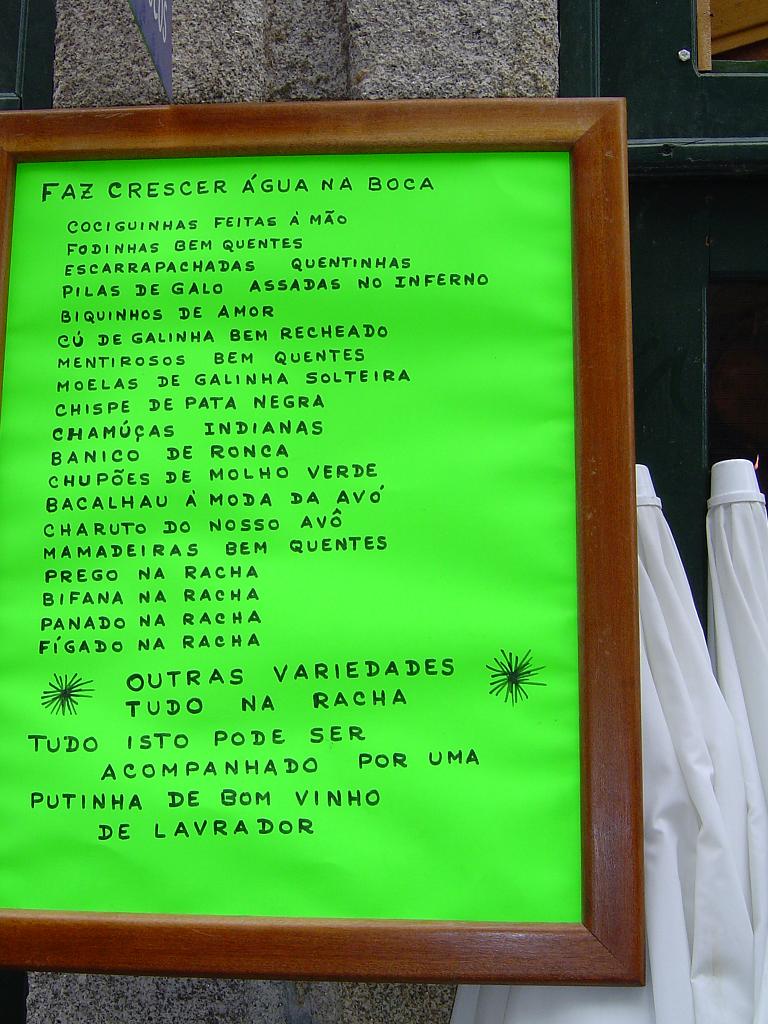 FAZ CRESCER ÁGUA NA BOCA
COCIGUINHAS FEITAS À MÃO
FODINHAS BEM QUENTES
ESCARRAPACHADAS QUENTINHAS
PILAS DE GALO ASSADAS NO INFERNO
BIQUINHOS DE AMOR
CÚ DE GALINHA BEM RECHEADO
MENTIROSOS BEM QUENTES
MOELAS DE GALINHA SOLTEIRA
CHISPE DE PATA NEGRA
CHAMÚÇAS INDIANAS
BANICO DE RONCA
CHUPÕES DE MOLHO VERDE
BACALHAU À MODA DA AVÓ
CHARUTO DO NOSSO AVÔ
MAMADEIRAS BEM QUENTES
PREGO NA RACHA
BIFANA NA RACHA
PANADO NA RACHA
FÍGADO NA RACHA
OUTRAS VARIEDADES
TUDO NA RACHA
TUDO ISTO PODE SER
ACOMPANHADO POR UMA
PUTINHA DE BOM VINHO
DE LAVRADOR